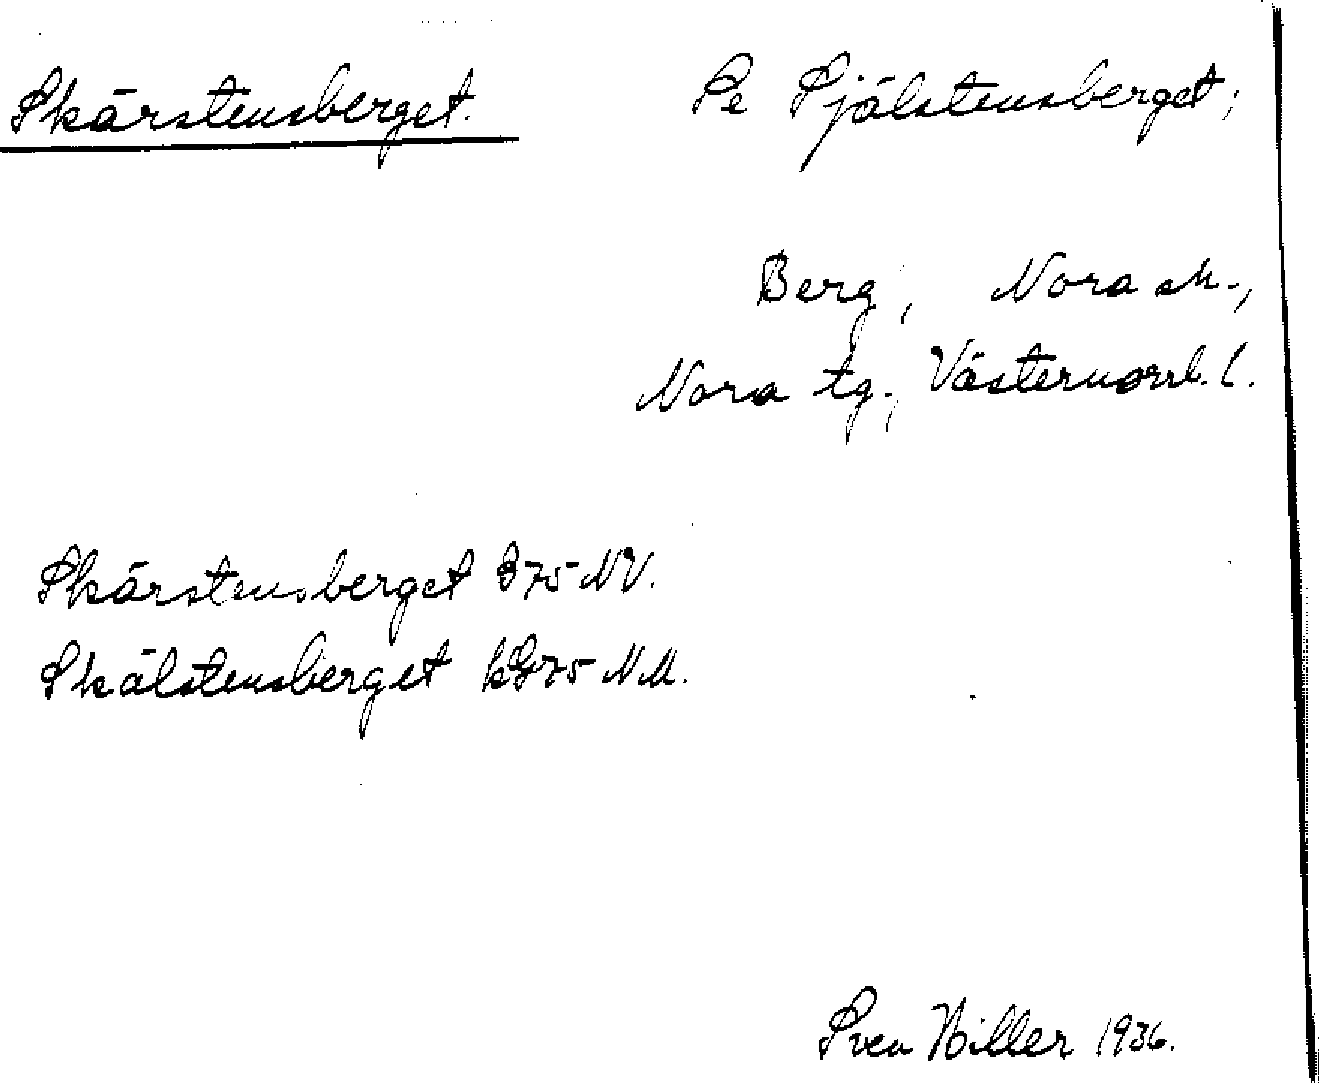 Skärstensberget. Se Själstensberget;
Berg, Nora sn.,
Nora tg., Västernorrl. l.
Skärstensberget G75 NV.
Skälstensberget kG75 NM.
Sven Hiller 1936.